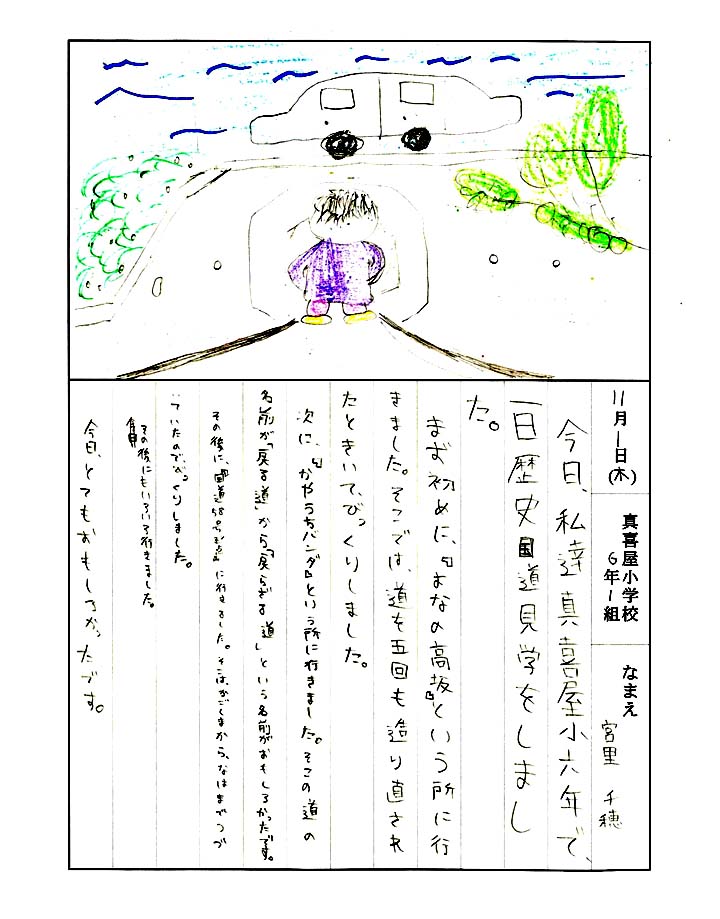 11月1日(木)
真喜屋小学校
6年1組
なまえ
宮里 千穂
今日、私達真喜屋小六年で、
一日歴史国道見学をしまし
た。
まず初めに、「よなの高坂」という所に行
きました。そこでは、道を五回も造り直され
たときいて、びっくりしました。
次に、「かやうちバンダ」という所に行きました。そこの道の
名前が「戻る道」から「戻らざる道」という名前がおもしろかったです。
その後に、「国道58号」に行きました。そこは、かごしまから、なはまでつづ
いていたのでびっくりしました。
その後にもいろいろ行きました。
今日、とてもおもしろかったです。